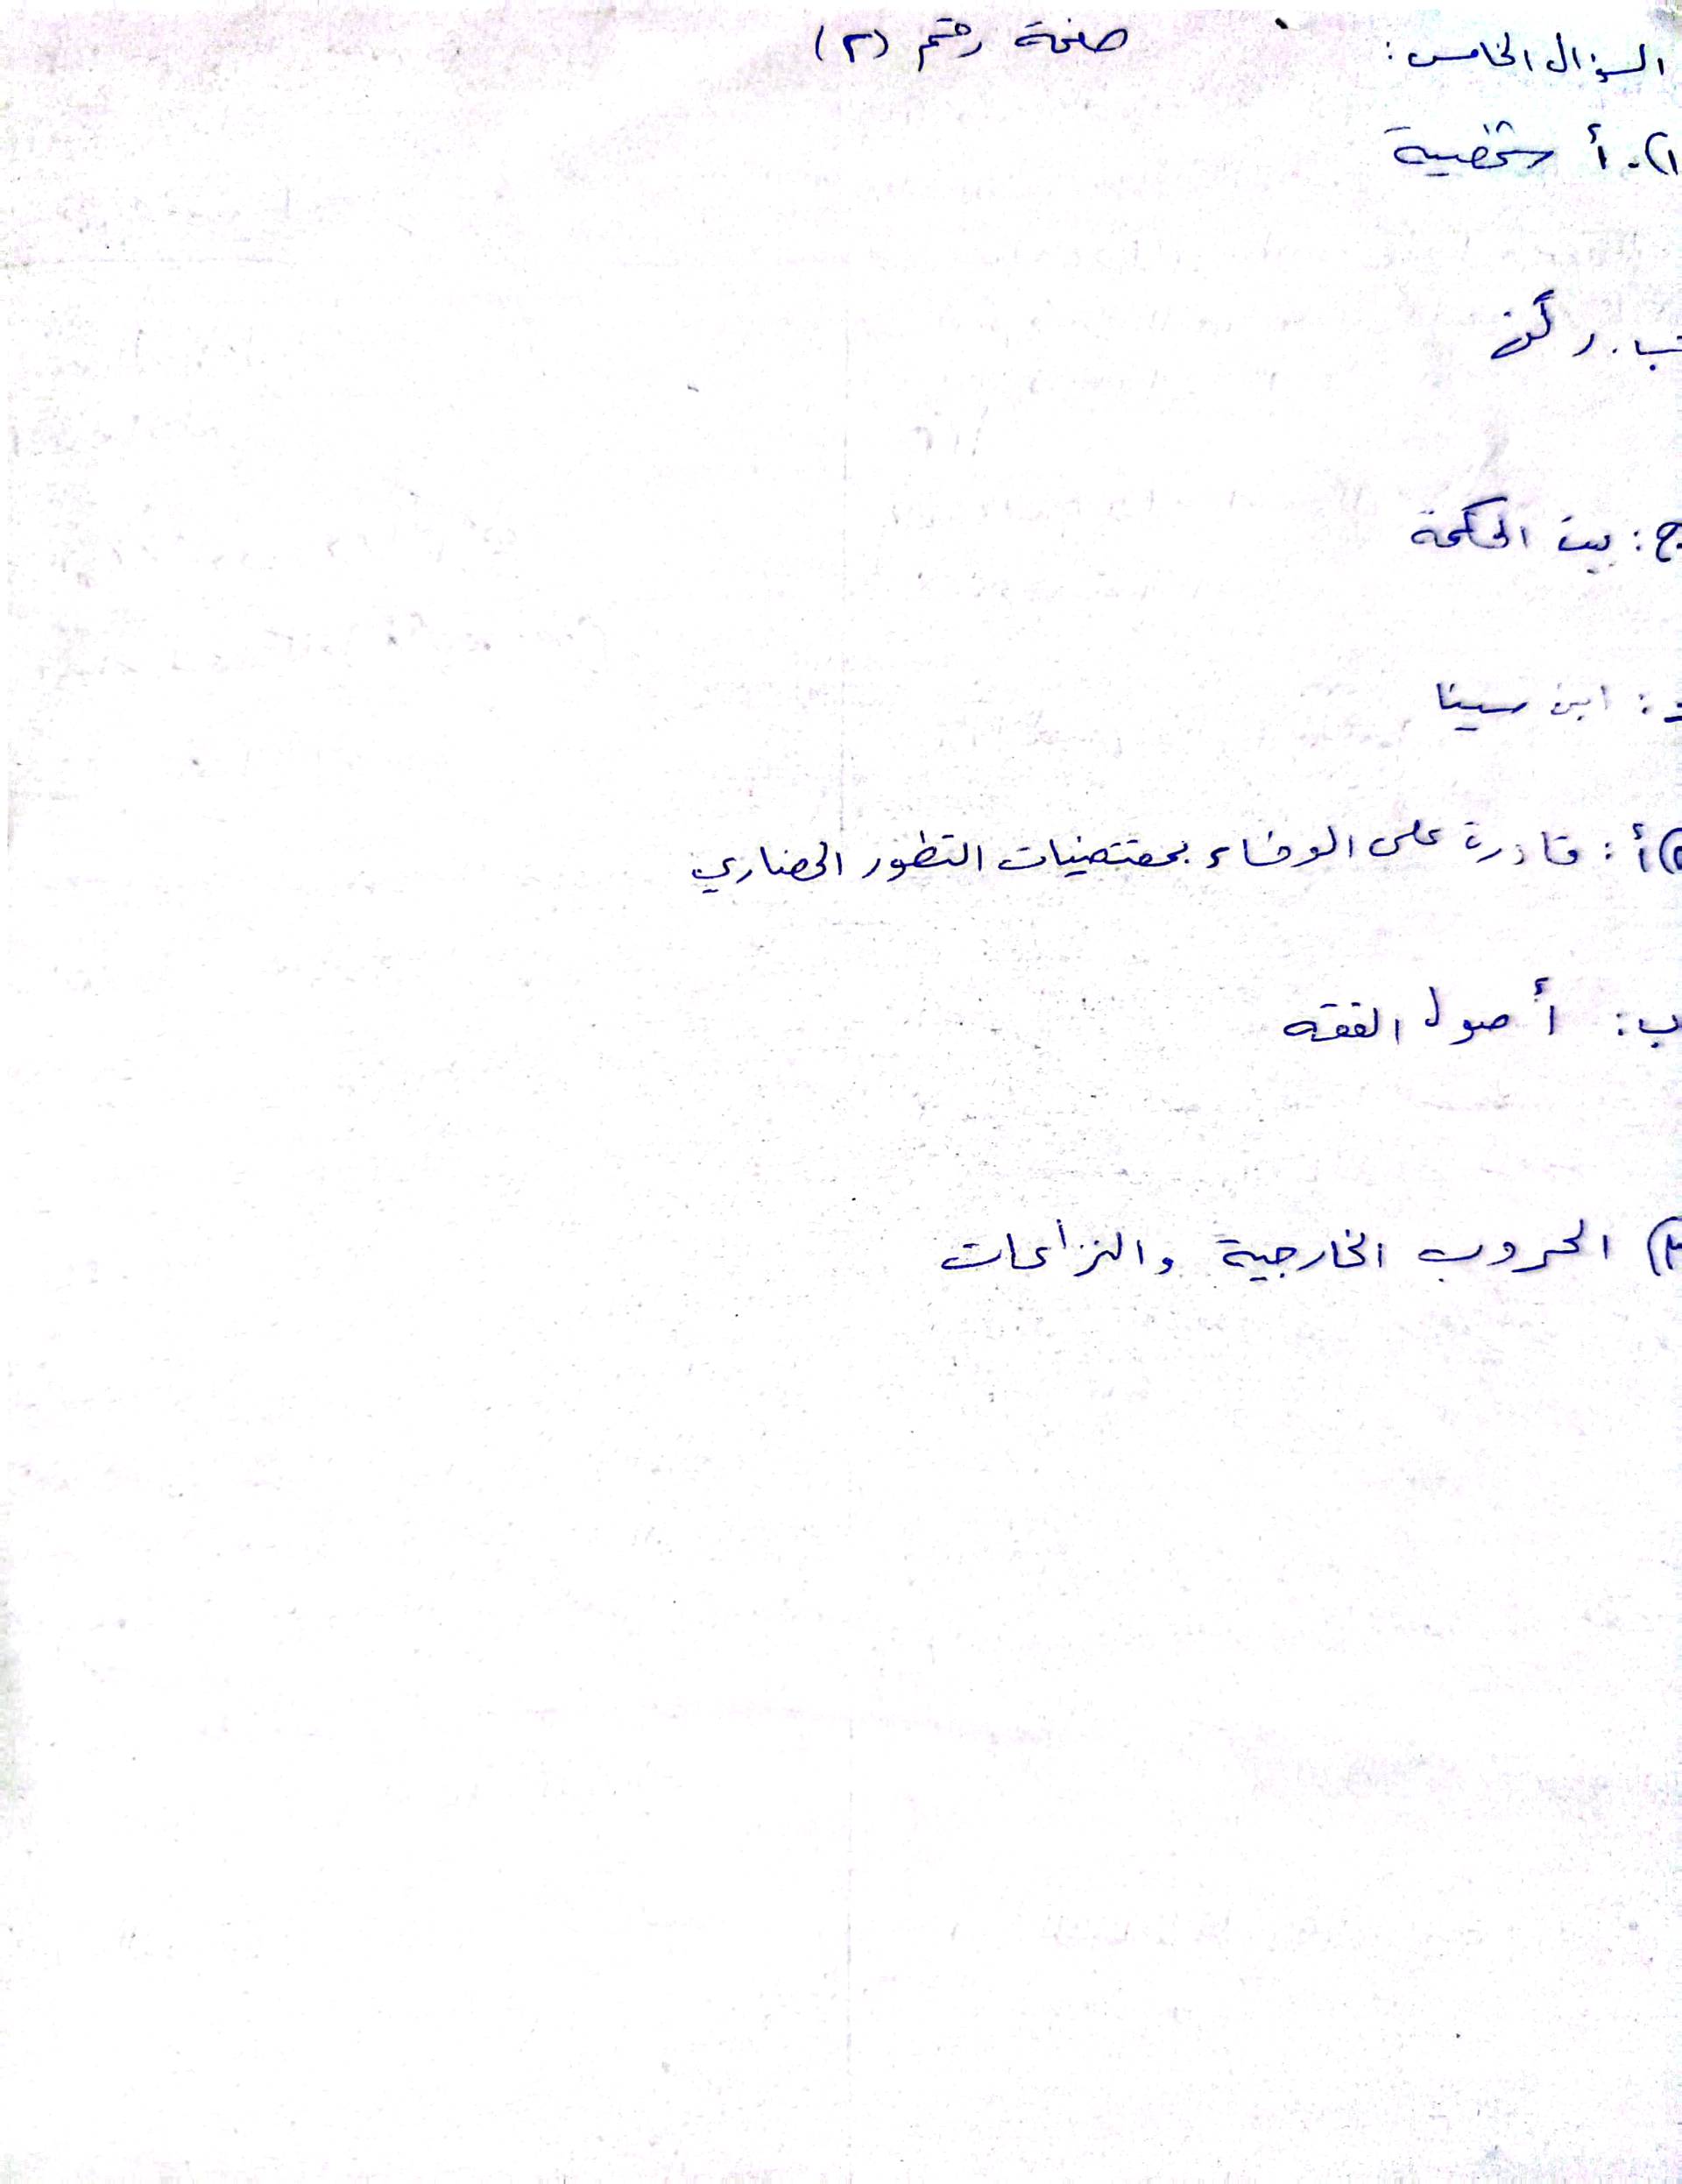 السؤال الخامس: صفحة رقم (٢)
١)- أ شخصية
ب. ركن
ج: بيت الحكمة
د: ابن سينا
٢) أ: قادرة على الوفاء بمقتضيات التطور الحضاري
ب: أصول الفقه
٣) الحروب الخارجية والنزاعات